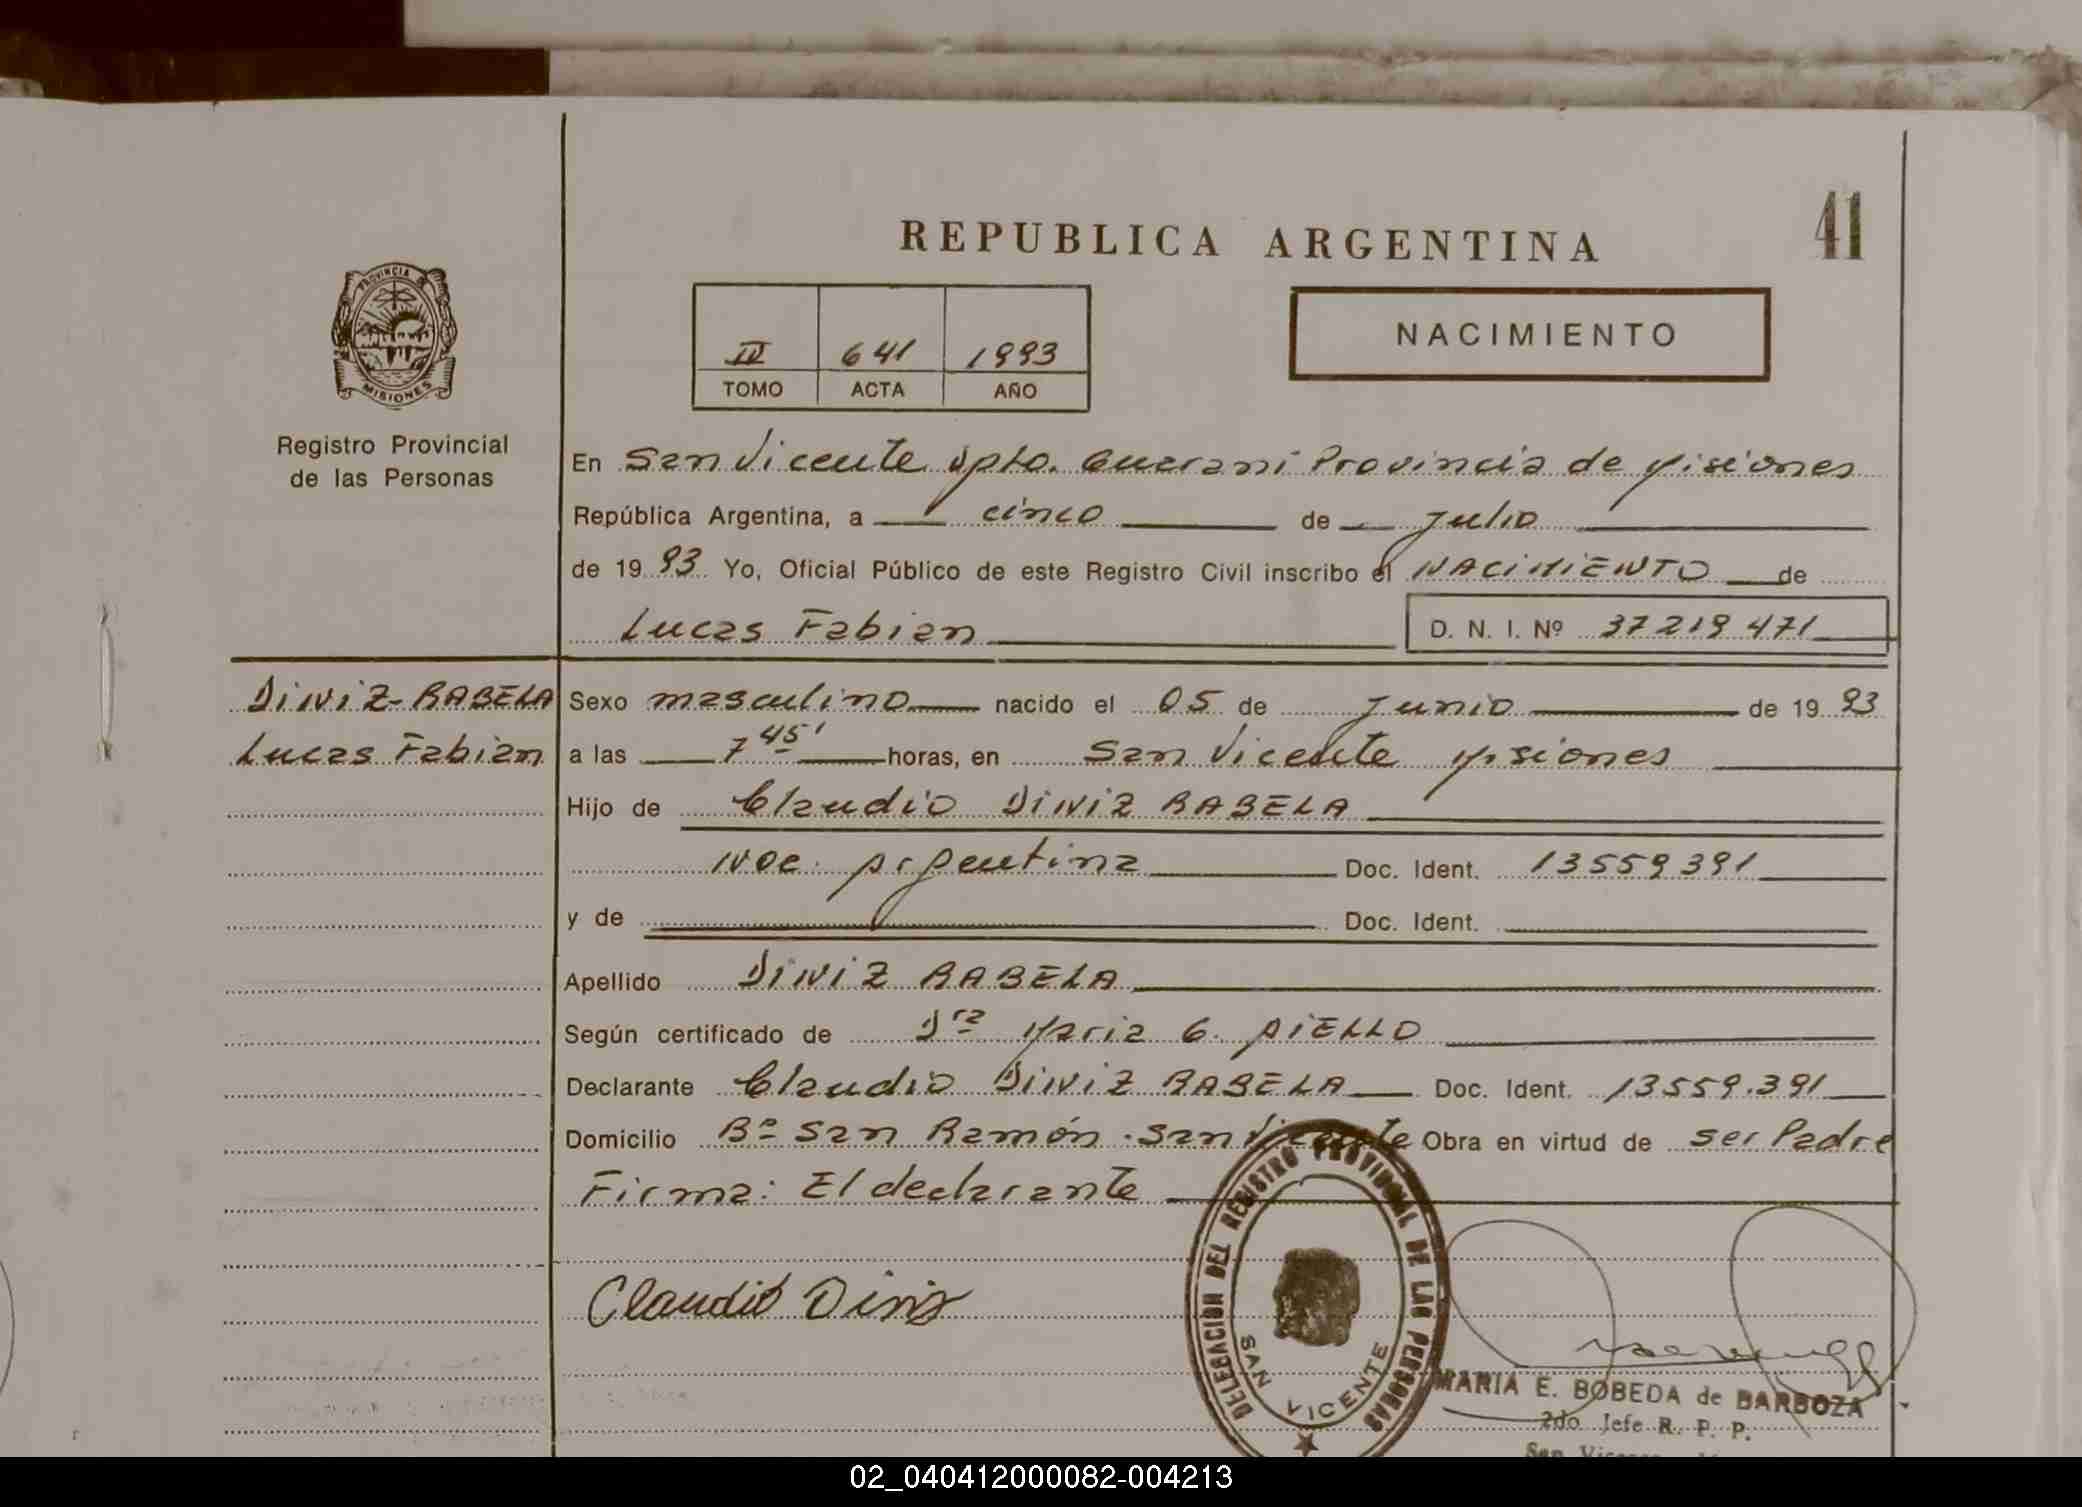 REPUBLICA ARGENTINA
41
NACIMIENTO
IV 641 1993
TOMO ACTA AÑO
PROVINCIA DE
MISIONES
Registro Provincial
de las Personas
En San Vicente Dpto. Guaraní Provincia de Misiones
República Argentina, a cinco de Julio
de 1993 Yo, Oficial Público de este Registro Civil inscribo el NACIMIENTO de
Lucas Fabian D. N. I. Nº 37219471
DINIZ-RABELA
Lucas Fabian
Sexo masculino nacido el 05 de Junio de 1993
a las 7 45' horas, en San Vicente Misiones
Hijo de Claudio DINIZ RABELA
Nac. Argentina Doc. Ident. 13559391
y de Doc. Ident.
Apellido DINIZ RABELA
Según certificado de Dra Maria G. AIELLO
Declarante Claudio DINIZ RABELA Doc. Ident. 13559.391
Domicilio Bº San Ramón - San Vicente Obra en virtud de ser Padre
Firma: El declarante
Claudio Diniz
DELEGACION DEL REGISTRO PROVINCIAL DE LAS PERSONAS
SAN VICENTE
MARIA E. BOBEDA de BARBOZA
2do Jefe R. P. P.
San
02_040412000082-004213